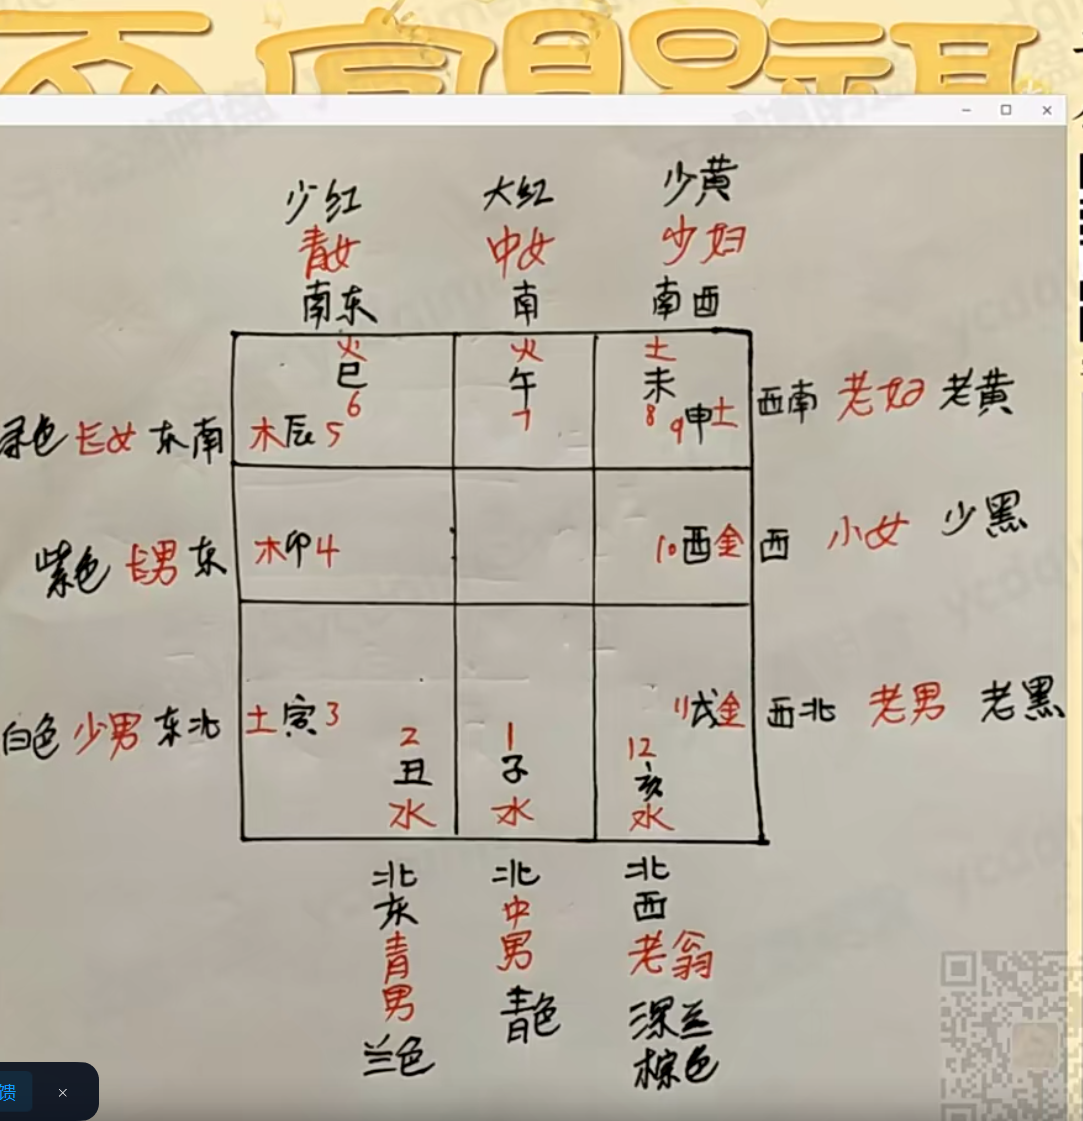 少红 大红 少黄
青女 中女 少妇
南东 南 南西
火 火 土
巳 午 未
6 7 8 9申土 西南 老妇 老黄
绿色 长女 东南 木辰5
紫色 长男 东 木卯4 10酉金 西 小女 少黑
白色 少男 东北 土寅3 11戌金 西北 老男 老黑
2 1 12
丑 子 亥
水 水 水
北 北 北
东 中 西
青 男 老翁
男 青色 深兰
兰色 棕色
馈 ×